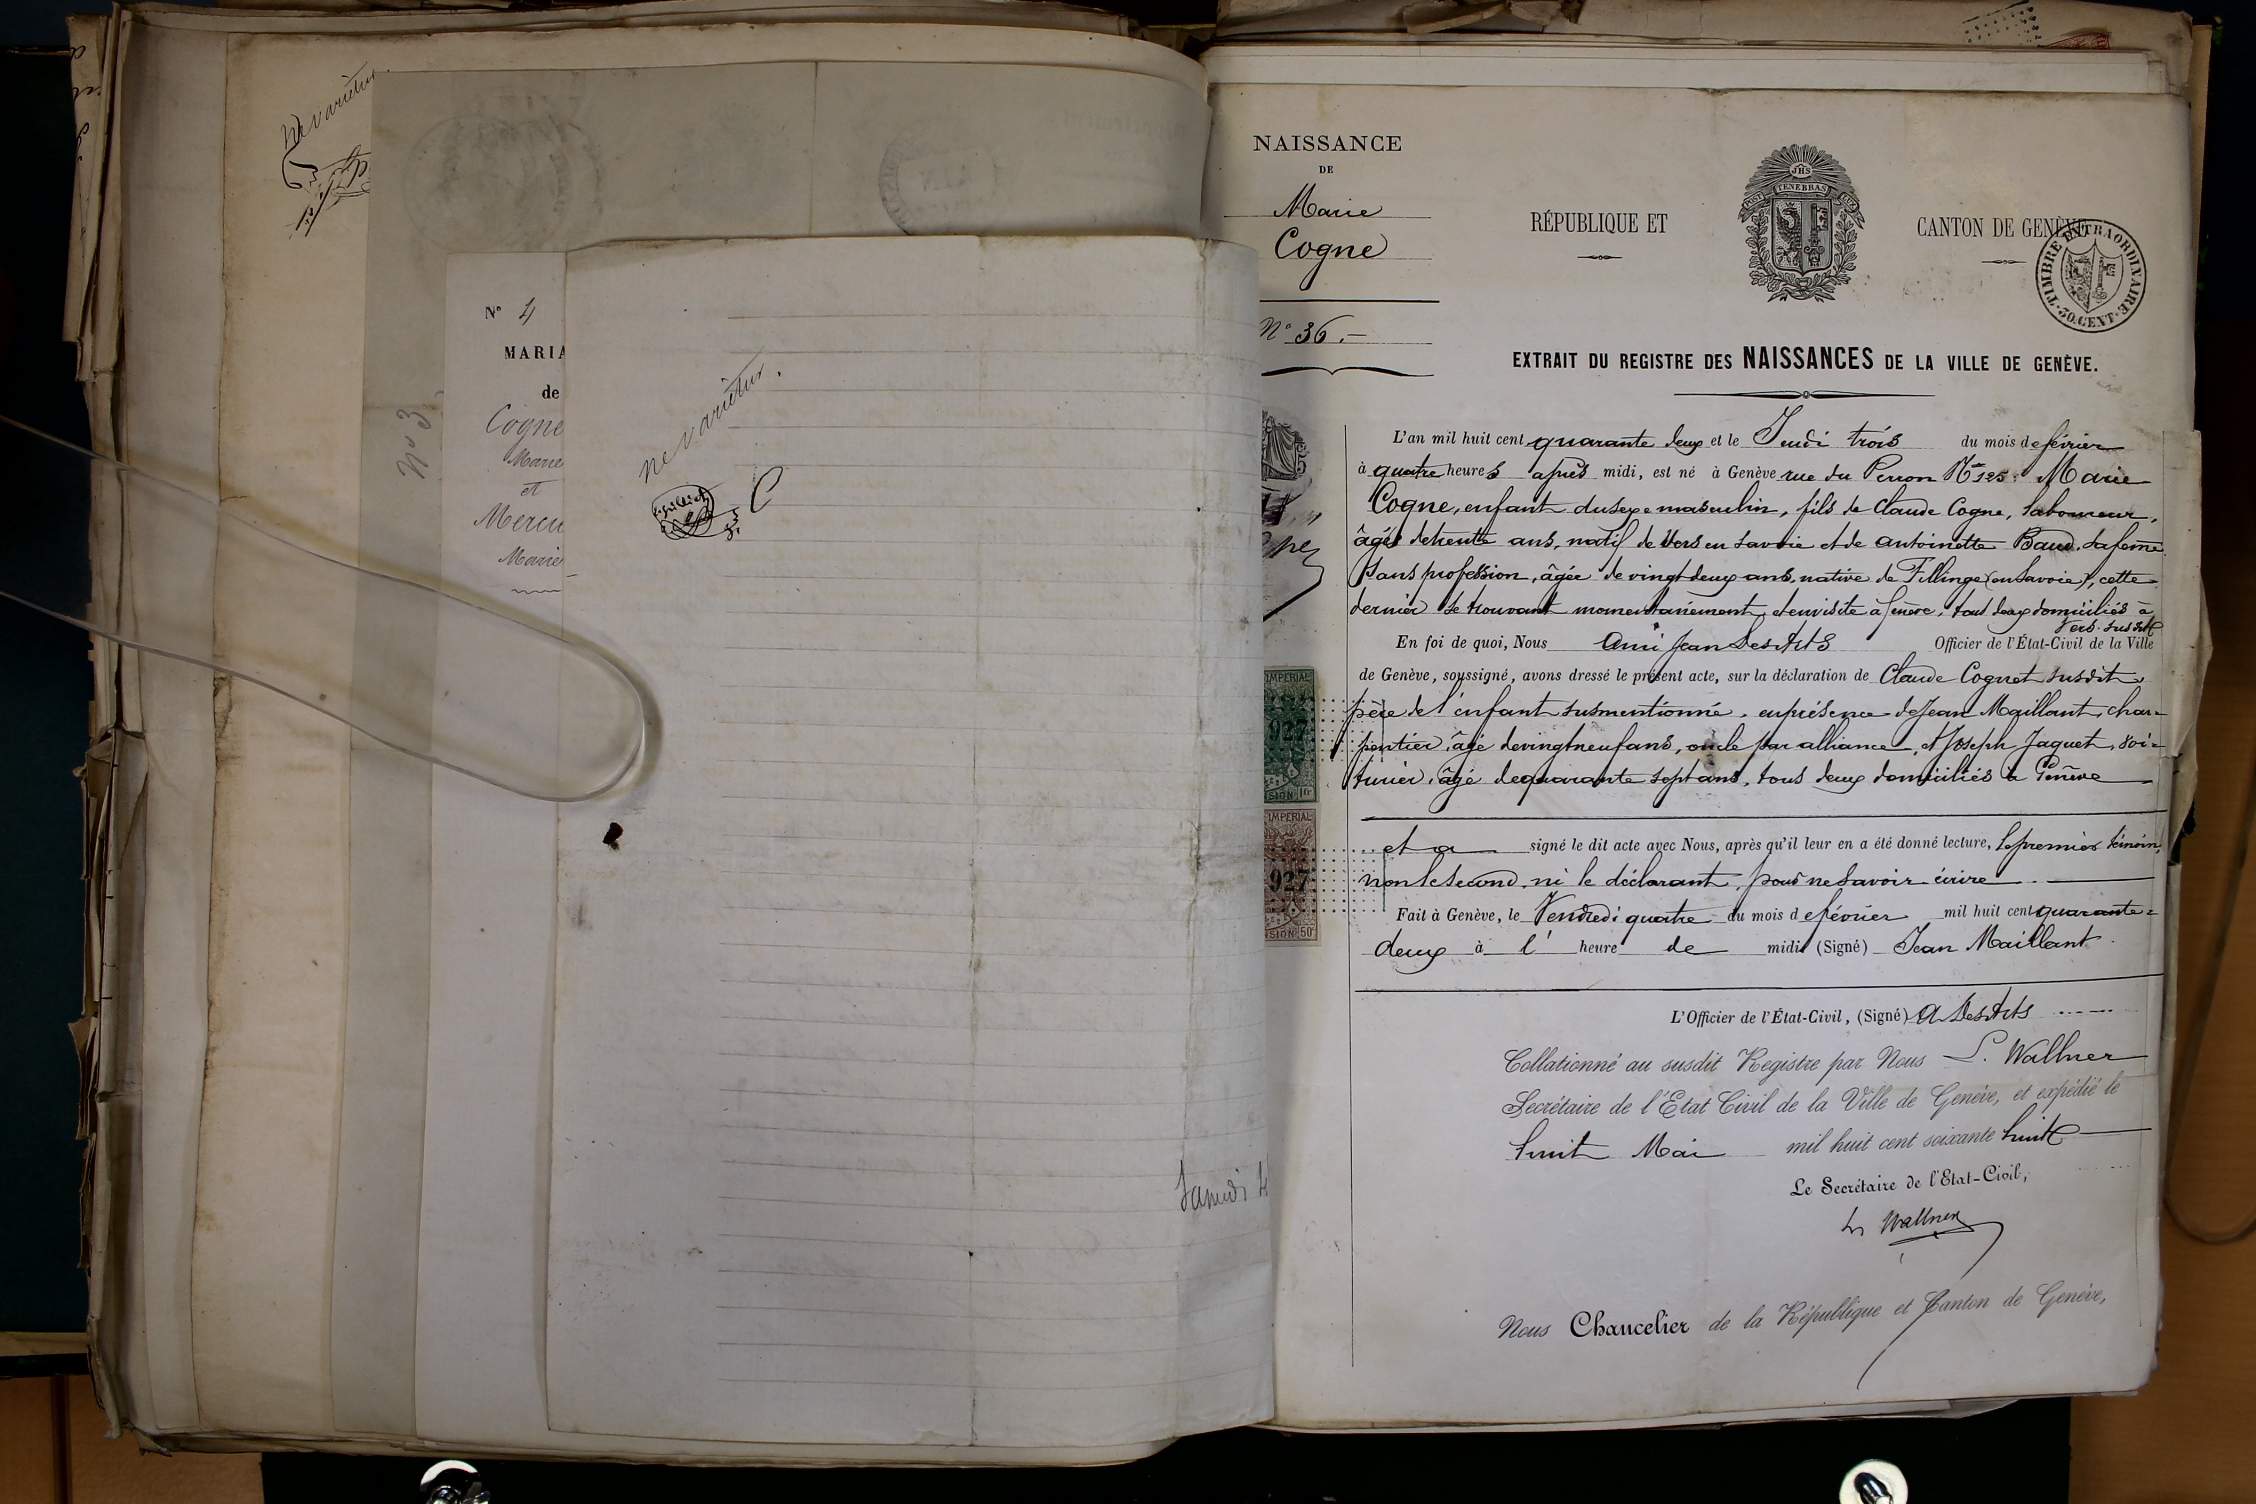 ne varietur
N° 3
N° 4
MARIA
de
Cogne
Marie
et
Mercu
Marie
ne varietur.
Samedi
NAISSANCE
DE
Marie
Cogne
N° 36.-
RÉPUBLIQUE ET
CANTON DE GENÈVE
POST TENEBRAS LUX
JHS
TIMBRE EXTRAORDINAIRE
30. CENT.
EXTRAIT DU REGISTRE DES NAISSANCES DE LA VILLE DE GENÈVE.
L'an mil huit cent quarante deux et le Jeudi trois du mois de février
à quatre heures après midi, est né à Genève rue du Perron N° 125. Marie
Cogne, enfant du sexe masculin, fils de Claude Cogne, laboureur,
âgé de trente ans, natif de Vers en Savoie et de antoinette Baud, sa feme
sans profession, âgée de vingt deux ans, native de Fillinge (en Savoie), cette
dernièr se trouvant momentanément et en visite à Genève, tout deux domiciliés à
Vers susdit
En foi de quoi, Nous Ami Jean DesArts Officier de l'État-Civil de la Ville
de Genève, soussigné, avons dressé le présent acte, sur la déclaration de Claude Cognet susdit,
père de l'enfant susmentionné, en présence de Jean Maillant, char-
pentier, âgé de vingt neuf ans, oncle par alliance, et Joseph Jaquet, voi-
turier, âgé de quarante sept ans, tous deux domiciliés à Genève
et a signé le dit acte avec Nous, après qu'il leur en a été donné lecture, le premier témoin,
non le second, ni le déclarant, pour ne savoir écrire
Fait à Genève, le Vendredi quatre du mois de février mil huit cent quarante-
deux à l' heure de midi (Signé) Jean Maillant
L'Officier de l'État-Civil, (Signé) A DesArts
Collationné au susdit Registre par Nous L. Wallner
Secrétaire de l'Etat Civil de la Ville de Genève, et expédié le
huit Mai mil huit cent soixante huit
Le Secrétaire de l'Etat-Civil,
L. Wallner
Nous Chancelier de la République et Canton de Genève,
5
IMPERIAL
927
SION 1fr
IMPERIAL
927
SION 50c